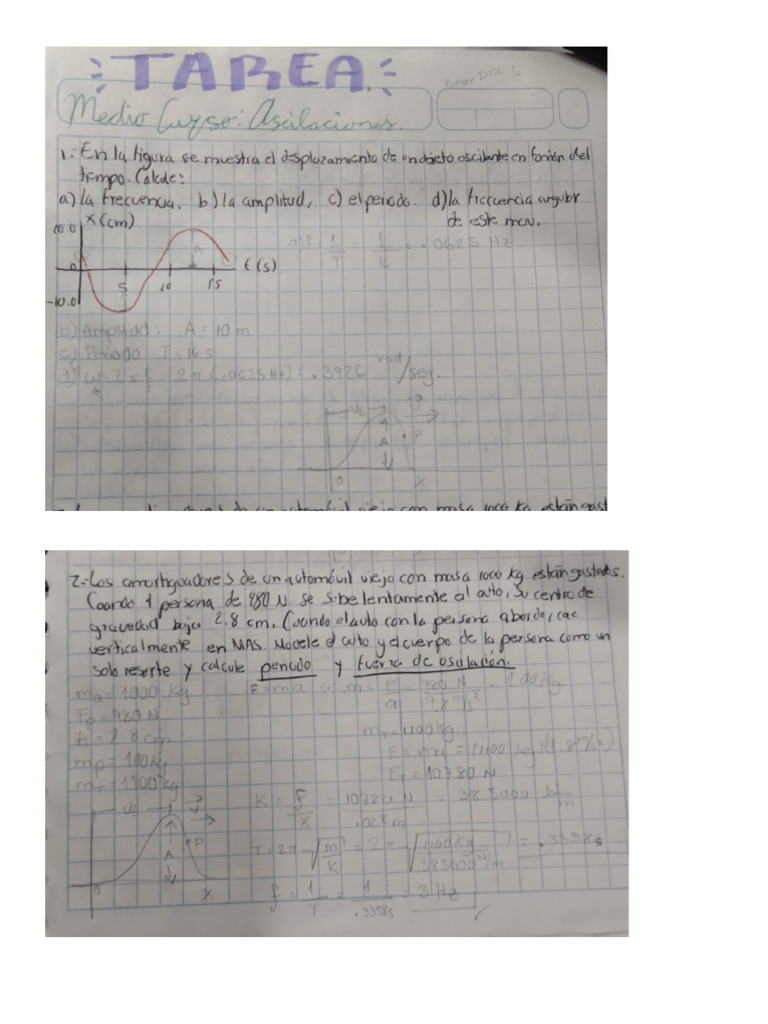 TAREA.
Medio Curso: Oscilaciones.
1.- En la figura se muestra el desplazamiento de un objeto oscilante en función del
tiempo. Calcule:
a) la frecuencia. b) la amplitud, c) el periodo. d) la frecuencia angular
de este mov.
x (cm)
10.0
0
-10.0
5 10 15
t (s)
a) f = 1/T = 1/16 = .0625 Hz
b) Amplitud: A = 10 m
c) Periodo T = 16 s
d) ω = 2πf = 2π (.0625 Hz) = .3926 rad/seg.
A
P
0
x
con masa 1000 kg están gast
2.- Los amortiguadores de un automóvil viejo con masa 1000 kg están gastados.
Cuando 1 persona de 980 N se sube lentamente al auto, su centro de
gravedad baja 2.8 cm. Cuando el auto con la persona a bordo, cae
verticalmente en MAS. Modele el auto y el cuerpo de la persona como un
solo resorte y calcule periodo y fuerza de oscilación.
mₐ = 1000 kg
F = ma ∴ m = F/a
9.8 m/s²
Fₚ = 980 N
A = 2.8 cm
mₚ = 100 kg
m_T = 1100 kg
m_T = 1100 kg
F_T = 10780 N
K = f/x = 10780 N/.028 m = 385000 N/m
T = 2π √m/K = 2π √1100 kg/385000 N/m = .3358 s
f = 1/T = 1/.3358s = 3 Hz
A
P
x